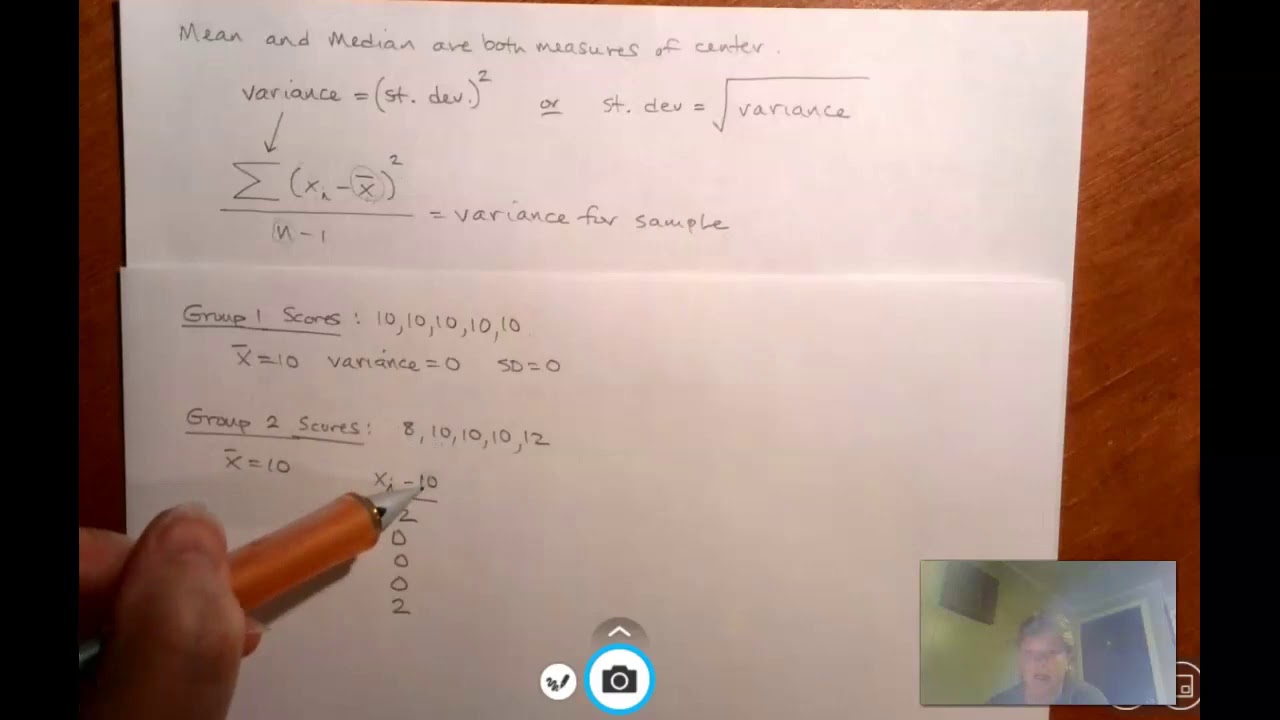 Mean and Median are both measures of center.
variance = (st. dev.)² or st. dev = √variance
∑ (xᵢ - x̄)²
n - 1
= variance for sample
Group 1 Scores : 10, 10, 10, 10, 10
x̄ = 10 variance = 0 SD = 0
Group 2 Scores : 8, 10, 10, 10, 12
x̄ = 10
xᵢ - 10
2
0
0
0
2